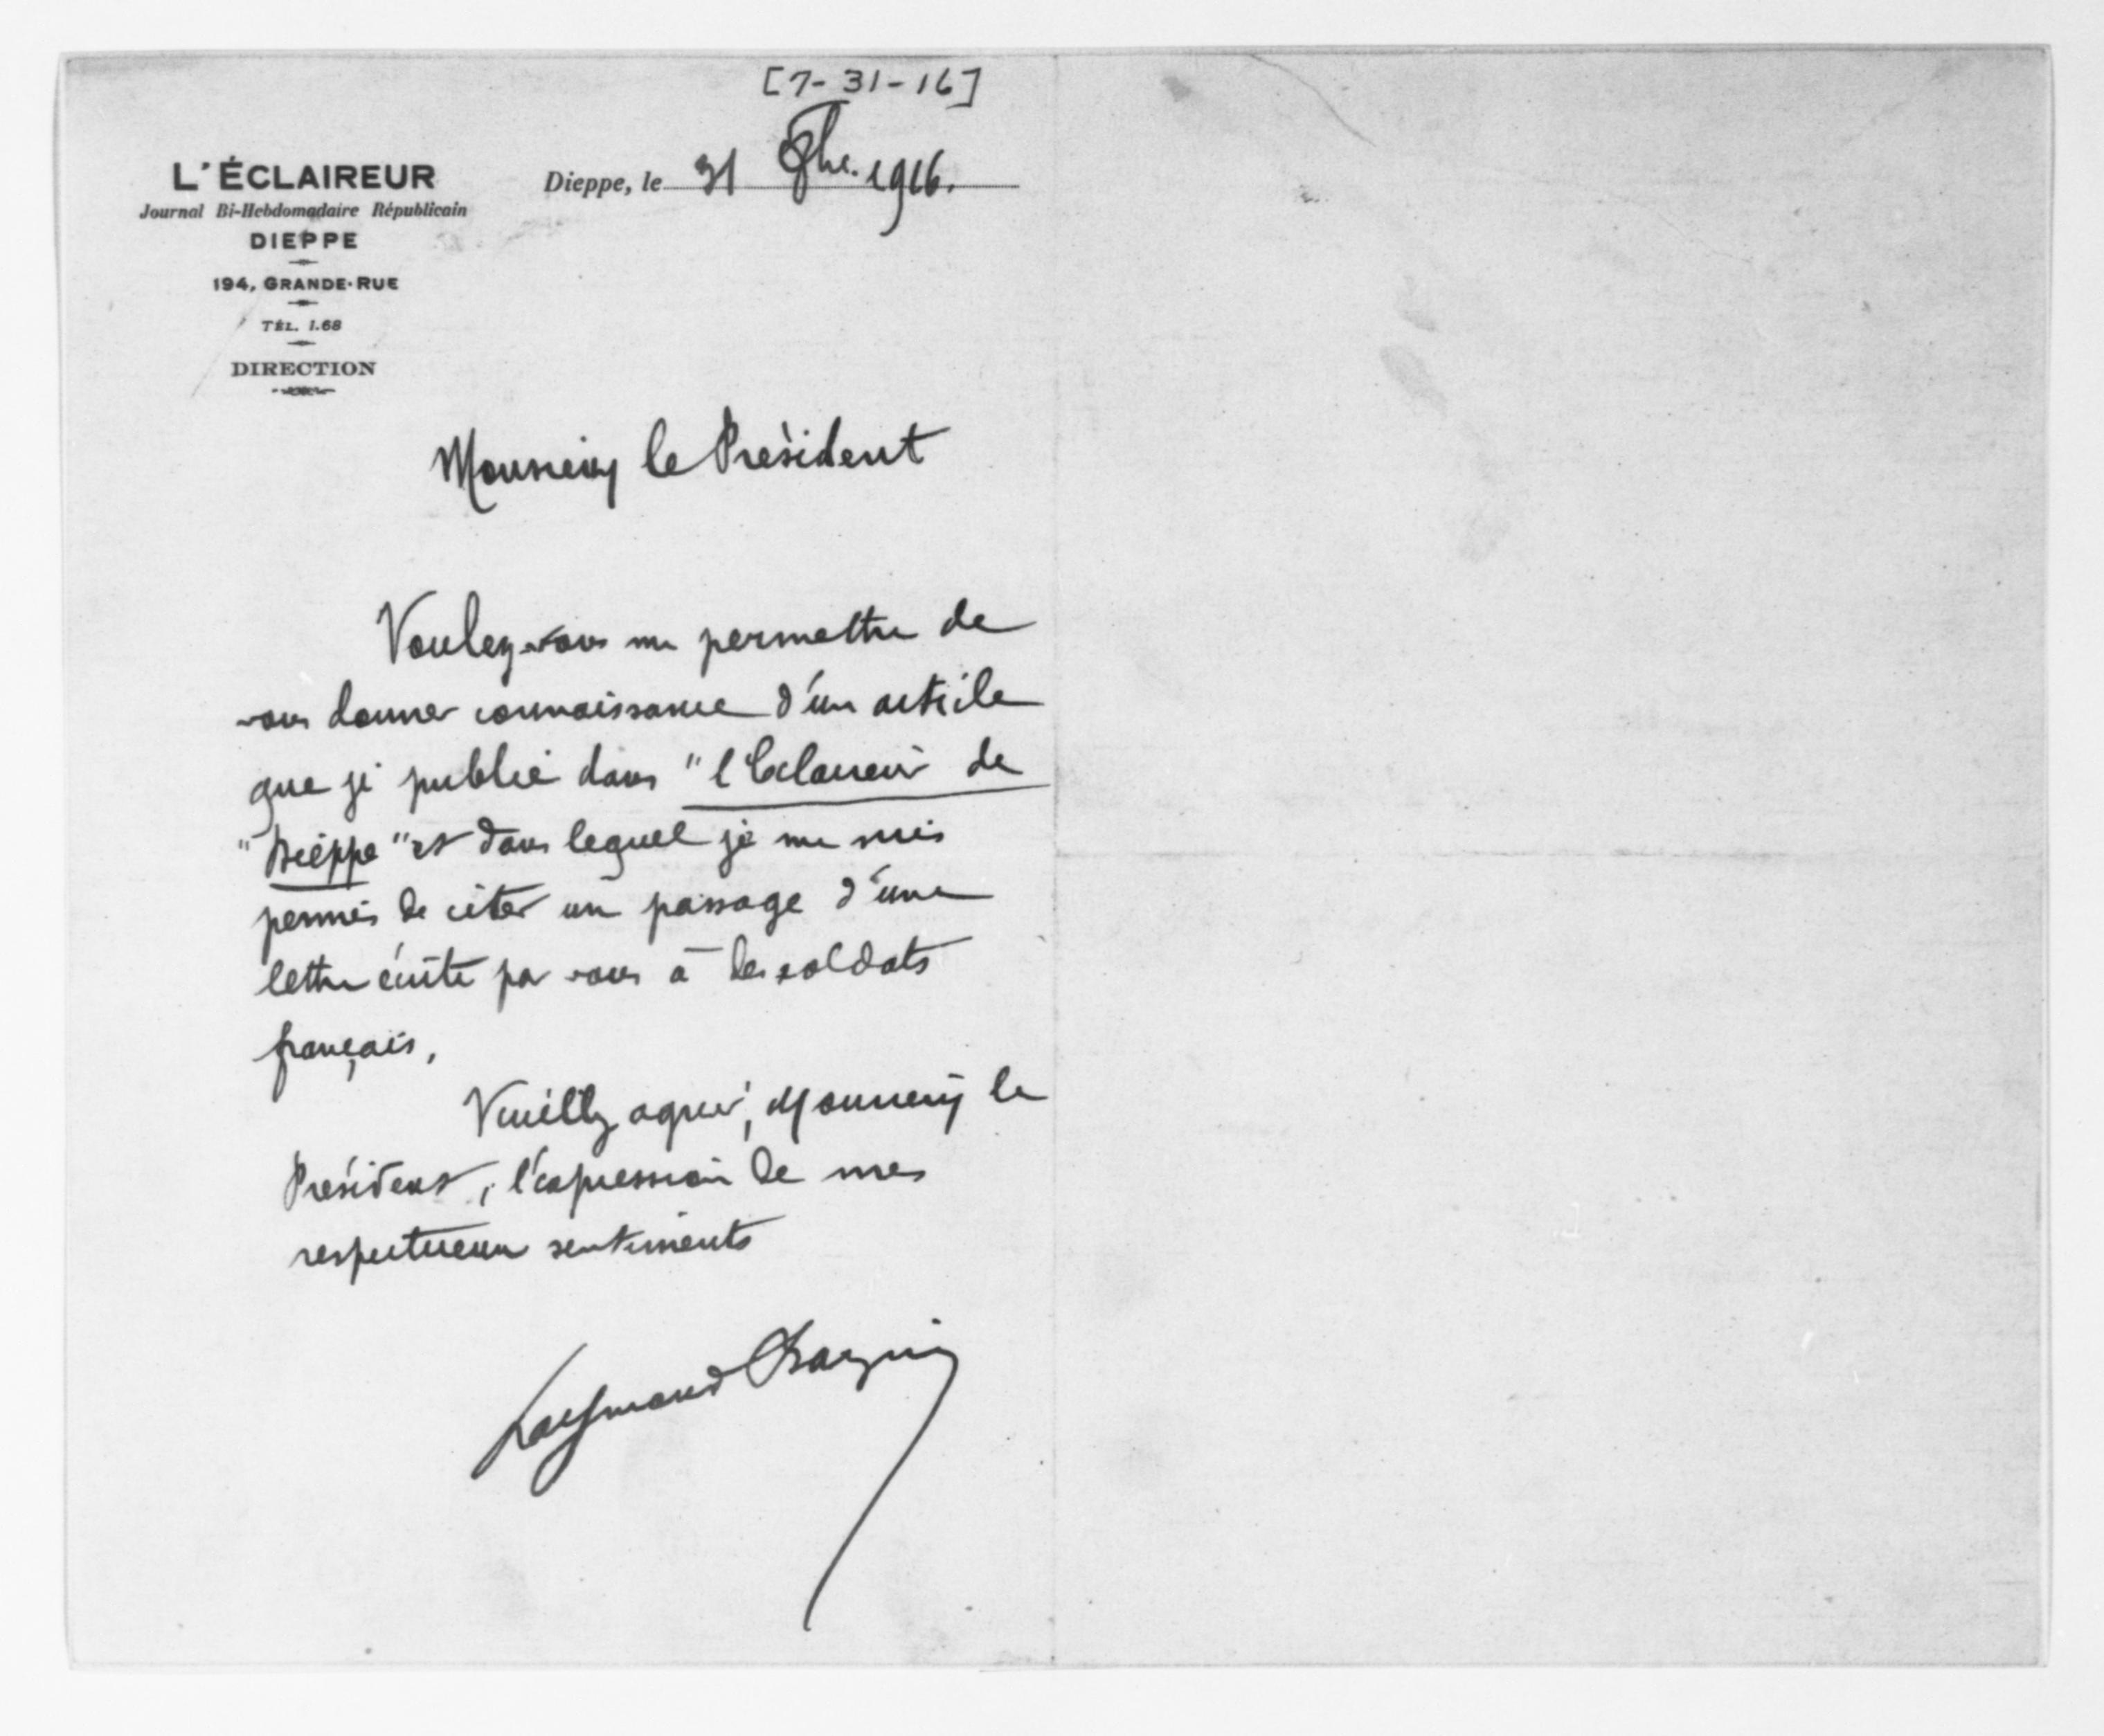 [7-31-16]
L'ÉCLAIREUR
Journal Bi-Hebdomadaire Républicain
DIEPPE
194, GRANDE-RUE
TÉL. 1.68
DIRECTION
Dieppe, le 31 8bre. 1916.
Monsieur le Président
Voulez-vous me permettre de
vous donner connaissance d'un article
que je publie dans "l'Eclaireur de
"Dieppe" et dans lequel je me suis
permis de citer un passage d'une
lettre écrite par vous à des soldats
français,
Veuillez agréer, Monsieur le
Président, l'expression de mes
respectueux sentiments
Raymond